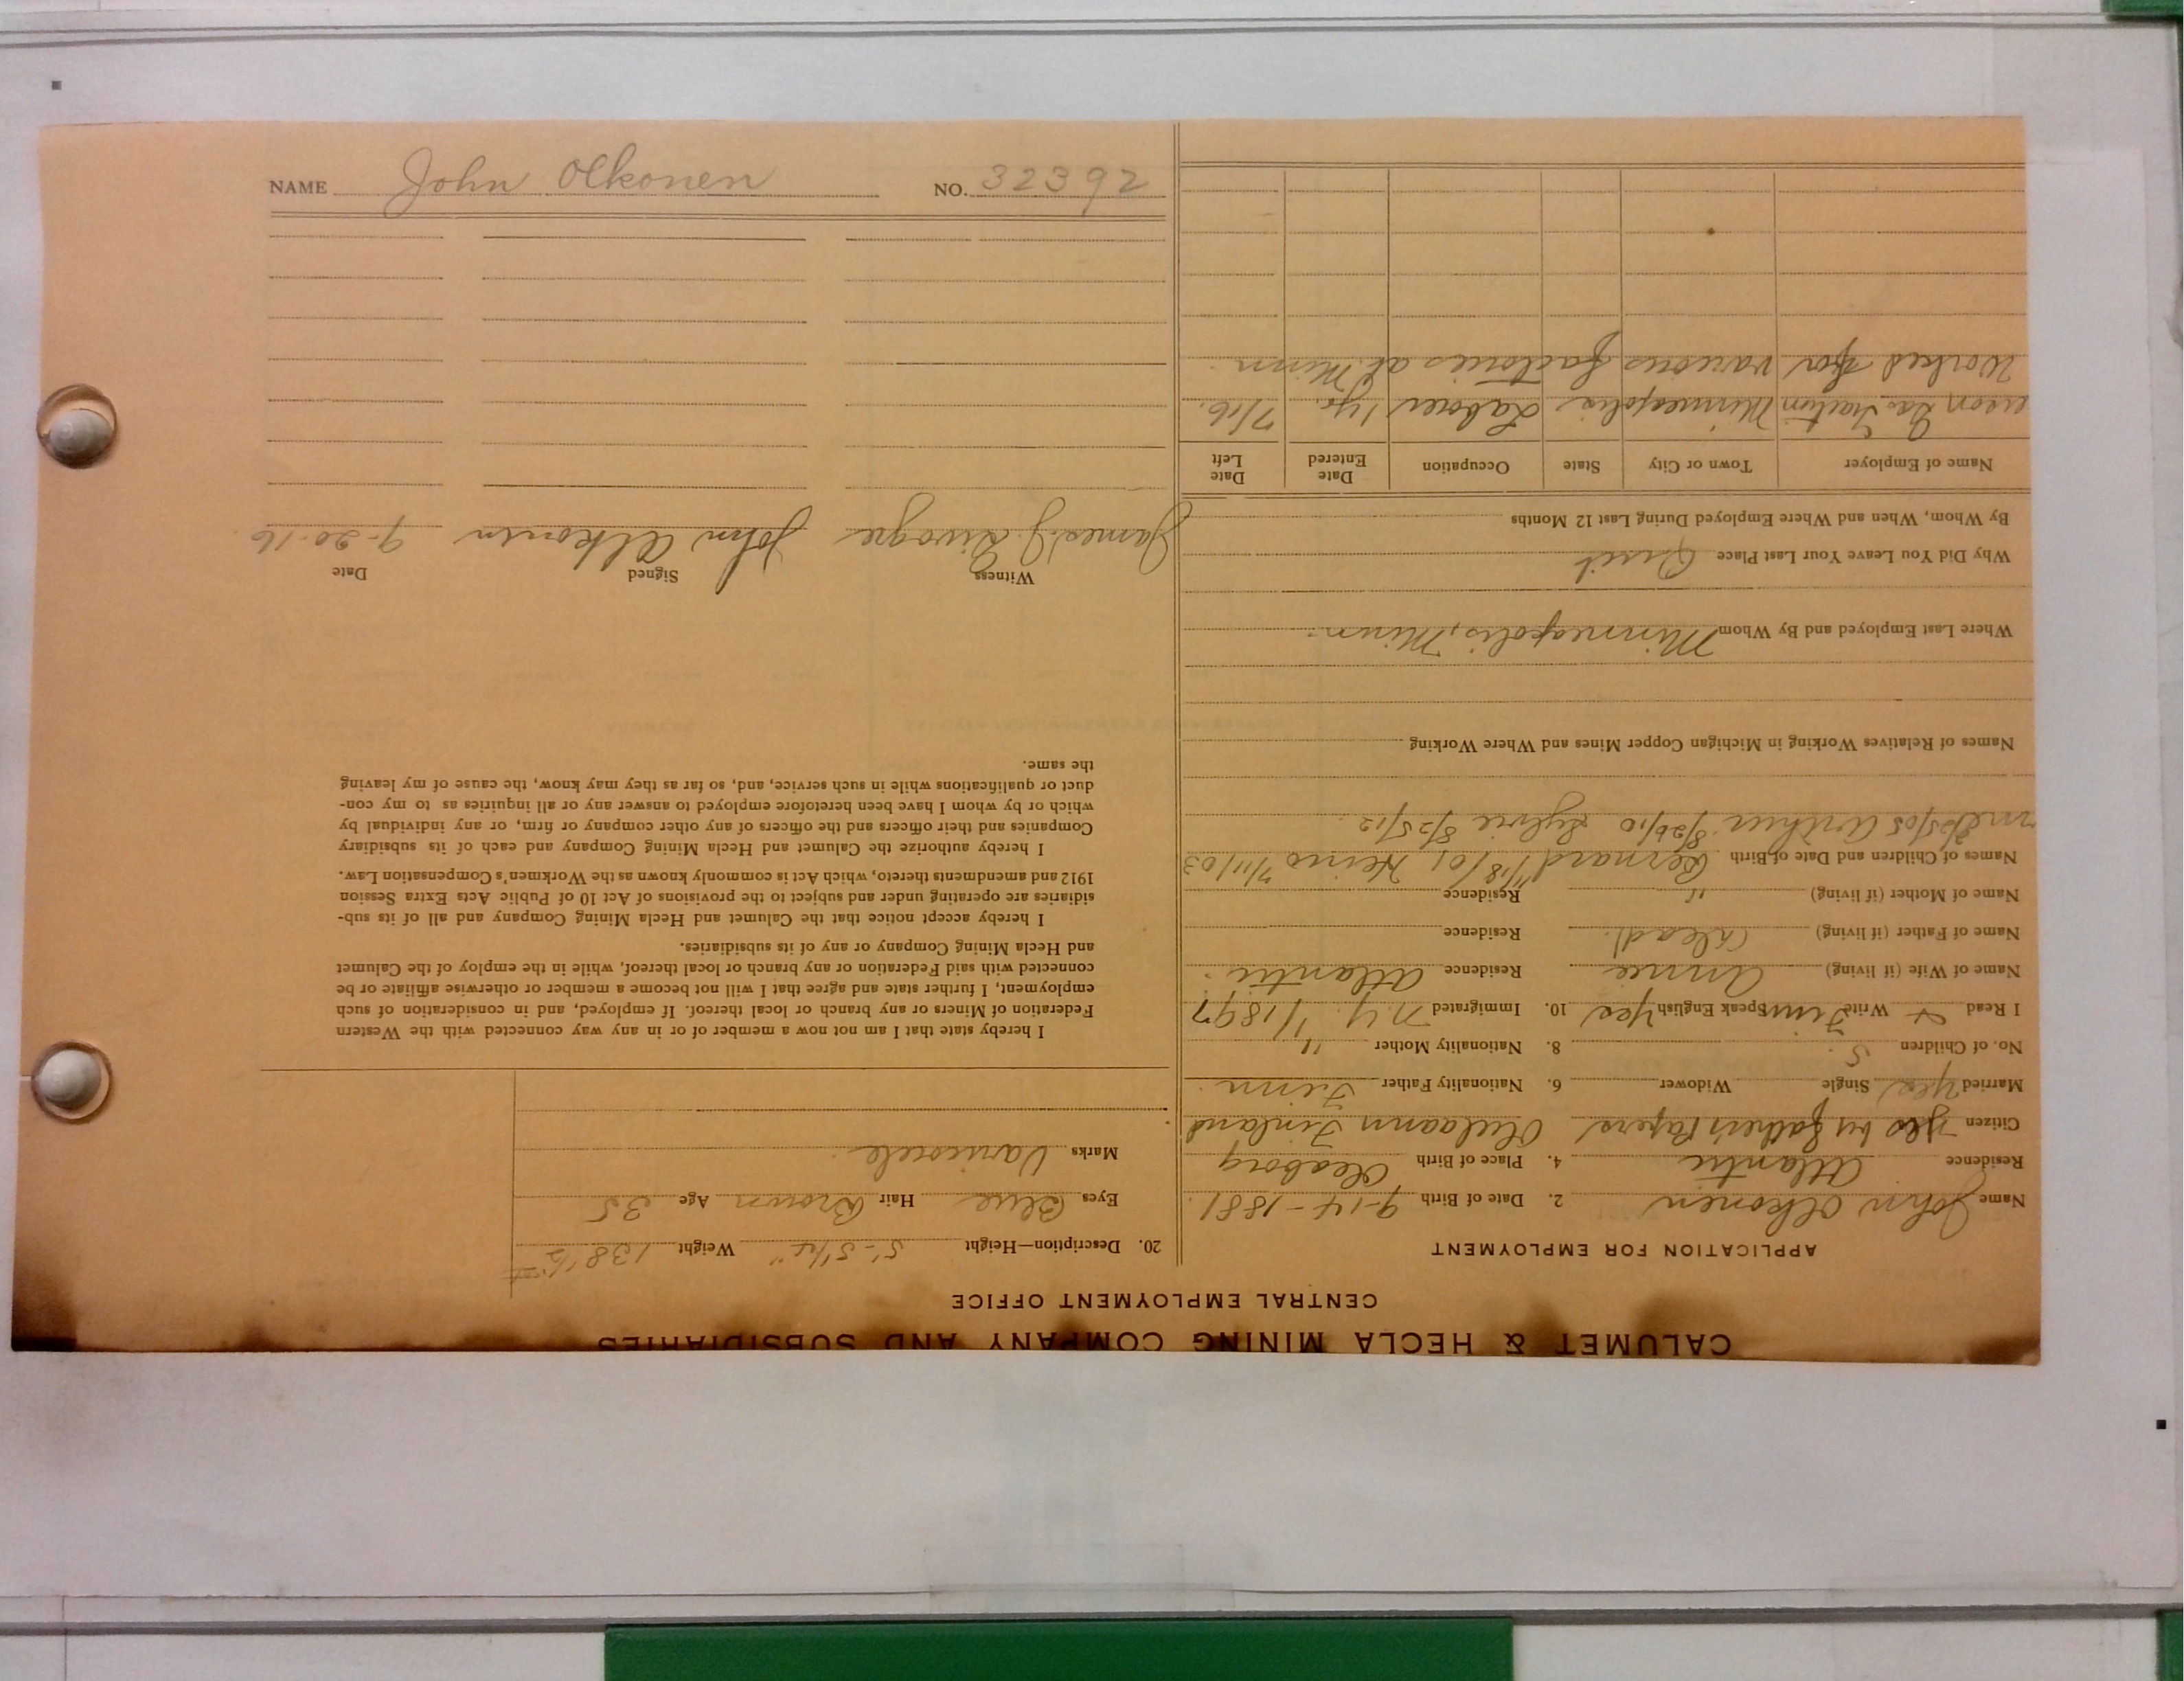 NAME John Olkonen NO. 32392
CALUMET & HECLA MINING COMPANY AND SUBSIDIARIES
CENTRAL EMPLOYMENT OFFICE
APPLICATION FOR EMPLOYMENT
Name John Olkonen 2. Date of Birth 9-14-1881.
Residence Atlantic 4. Place of Birth Uleaborg
Citizen Yes by father's Papers Finland
Married Yes Single Widower 6. Nationality Father Finn.
No. of Children 5. 8. Nationality Mother "
I Read & Write Finn Speak English Yes 10. Immigrated N.Y. 1/1897
Name of Wife (if living) Annie Residence Atlantic.
Name of Father (if living) (dead). Residence
Name of Mother (if living) " Residence
Names of Children and Date of Birth Bernard 11/18/01 Heino 7/11/03
/25/05 Arthur 8/26/10 Sylvie 8/25/12
Names of Relatives Working in Michigan Copper Mines and Where Working
Where Last Employed and By Whom Minneapolis, Minn.
Why Did You Leave Your Last Place Quit
By Whom, When and Where Employed During Last 12 Months
Name of Employer Town or City State Occupation Date Entered Date Left
Gas Traction Minneapolis Laborer 1 yr. 7/16.
Worked for various factories at Minn.
20. Description—Height 5'-5 1/4" Weight 138 1/2
Eyes Blue Hair Brown Age 35
Marks Varicocele.
I hereby state that I am not now a member of or in any way connected with the Western
Federation of Miners or any branch or local thereof. If employed, and in consideration of such
employment, I further state and agree that I will not become a member or otherwise affiliate or be
connected with said Federation or any branch or local thereof, while in the employ of the Calumet
and Hecla Mining Company or any of its subsidiaries.
I hereby accept notice that the Calumet and Hecla Mining Company and all of its sub-
sidiaries are operating under and subject to the provisions of Act 10 of Public Acts Extra Session
1912 and amendments thereto, which Act is commonly known as the Workmen's Compensation Law.
I hereby authorize the Calumet and Hecla Mining Company and each of its subsidiary
Companies and their officers and the officers of any other company or firm, or any individual by
which or by whom I have been heretofore employed to answer any or all inquiries as to my con-
duct or qualifications while in such service, and, so far as they may know, the cause of my leaving
the same.
Witness Signed Date
James J. John Olkonen 9-20-16.